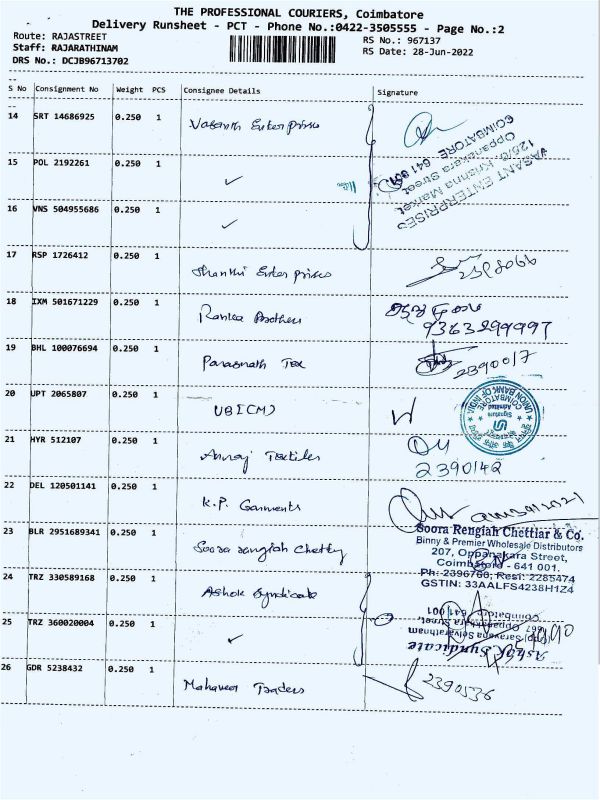 THE PROFESSIONAL COURIERS, Coimbatore
Delivery Runsheet - PCT - Phone No.:0422-3505555 - Page No.:2
Route: RAJASTREET
RS No.: 967137
Staff: RAJARATHINAM
RS Date: 28-Jun-2022
DRS No.: DCJB96713702
S No Consignment No Weight PCS Consignee Details Signature
14 SRT 14686925 0.250 1 Vasanth Enterprises
VASANT ENTERPRISES
126/8, Krishna Market
Oppanakara Street
COIMBATORE 641 001
15 POL 2192261 0.250 1 ✓
16 VNS 504955686 0.250 1 ✓
17 RSP 1726412 0.250 1 Shanthi Enterprises
18 IXM 501671229 0.250 1 Ranka Brothers
9363299997
19 BHL 100076694 0.250 1 Parasnath Tex 2390017
20 UPT 2065807 0.250 1 UBI(CM)
UNION BANK OF INDIA
COIMBATORE
21 HYR 512107 0.250 1 Textiles
2390142
22 DEL 120501141 0.250 1 K.P. Garments
23 BLR 2951689341 0.250 1 Soora rengiah Chetty
Soora Rengiah Chettiar & Co.
Binny & Premier Wholesale Distributors
207, Oppanakara Street,
Coimbatore - 641 001.
Ph: 2396760, Resi: 2285474
GSTIN: 33AALFS4238H1Z4
24 TRZ 330589168 0.250 1 Ashok Syndicate
25 TRZ 360020004 0.250 1 ✓
Ashok Syndicate
Coimbatore - 641 001
26 GDR 5238432 0.250 1 Mahaveer Traders 2390536